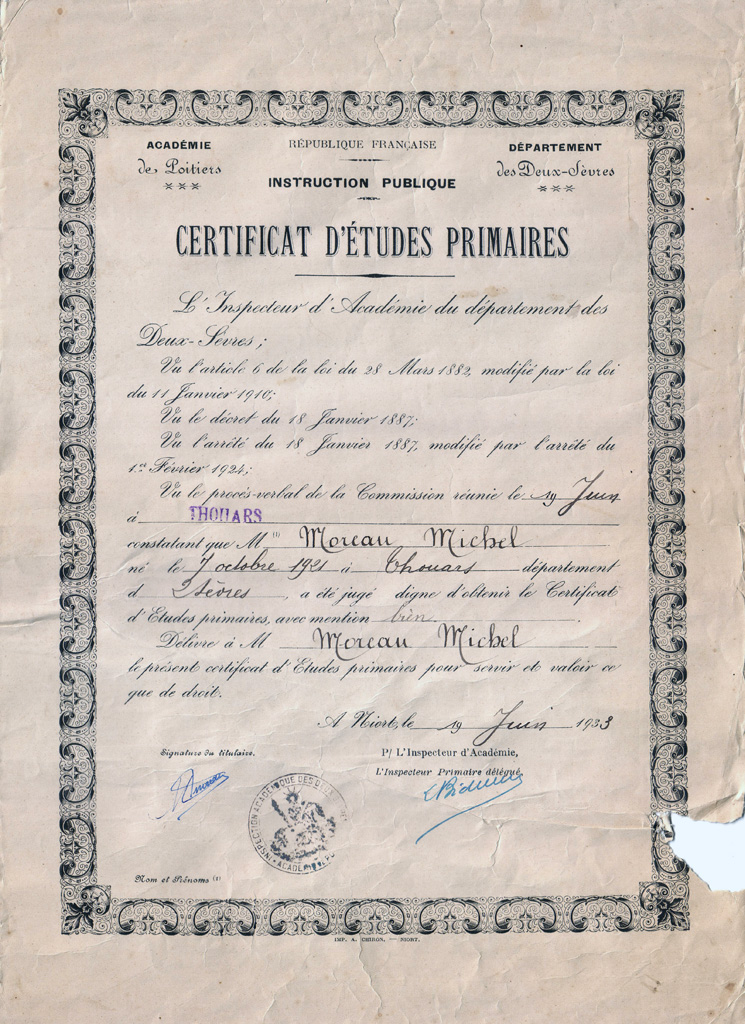 ACADÉMIE
de Poitiers
RÉPUBLIQUE FRANÇAISE
INSTRUCTION PUBLIQUE
DÉPARTEMENT
des Deux-Sèvres
CERTIFICAT D'ÉTUDES PRIMAIRES
L'Inspecteur d'Académie du département des
Deux-Sèvres;
Vu l'article 6 de la loi du 28 Mars 1882, modifié par la loi
du 11 Janvier 1910;
Vu le décret du 18 Janvier 1887;
Vu l'arrêté du 18 Janvier 1887, modifié par l'arrêté du
1er Février 1924;
Vu le procès-verbal de la Commission réunie le 19 Juin
à THOUARS
constatant que M (1) Moreau Michel
né le 7 octobre 1921 à Thouars département
d 2 Sèvres, a été jugé digne d'obtenir le Certificat
d'Etudes primaires, avec mention bien.
Délivré à M Moreau Michel
le présent certificat d'Etudes primaires pour servir et valoir ce
que de droit.
A Niort, le 19 Juin 1933
Signature du titulaire.
P/ L'Inspecteur d'Académie,
L'Inspecteur Primaire délégué
INSPECTION ACADÉMIQUE DES
Nom et Prénoms (1)
IMP. A. CHIRON. — NIORT.